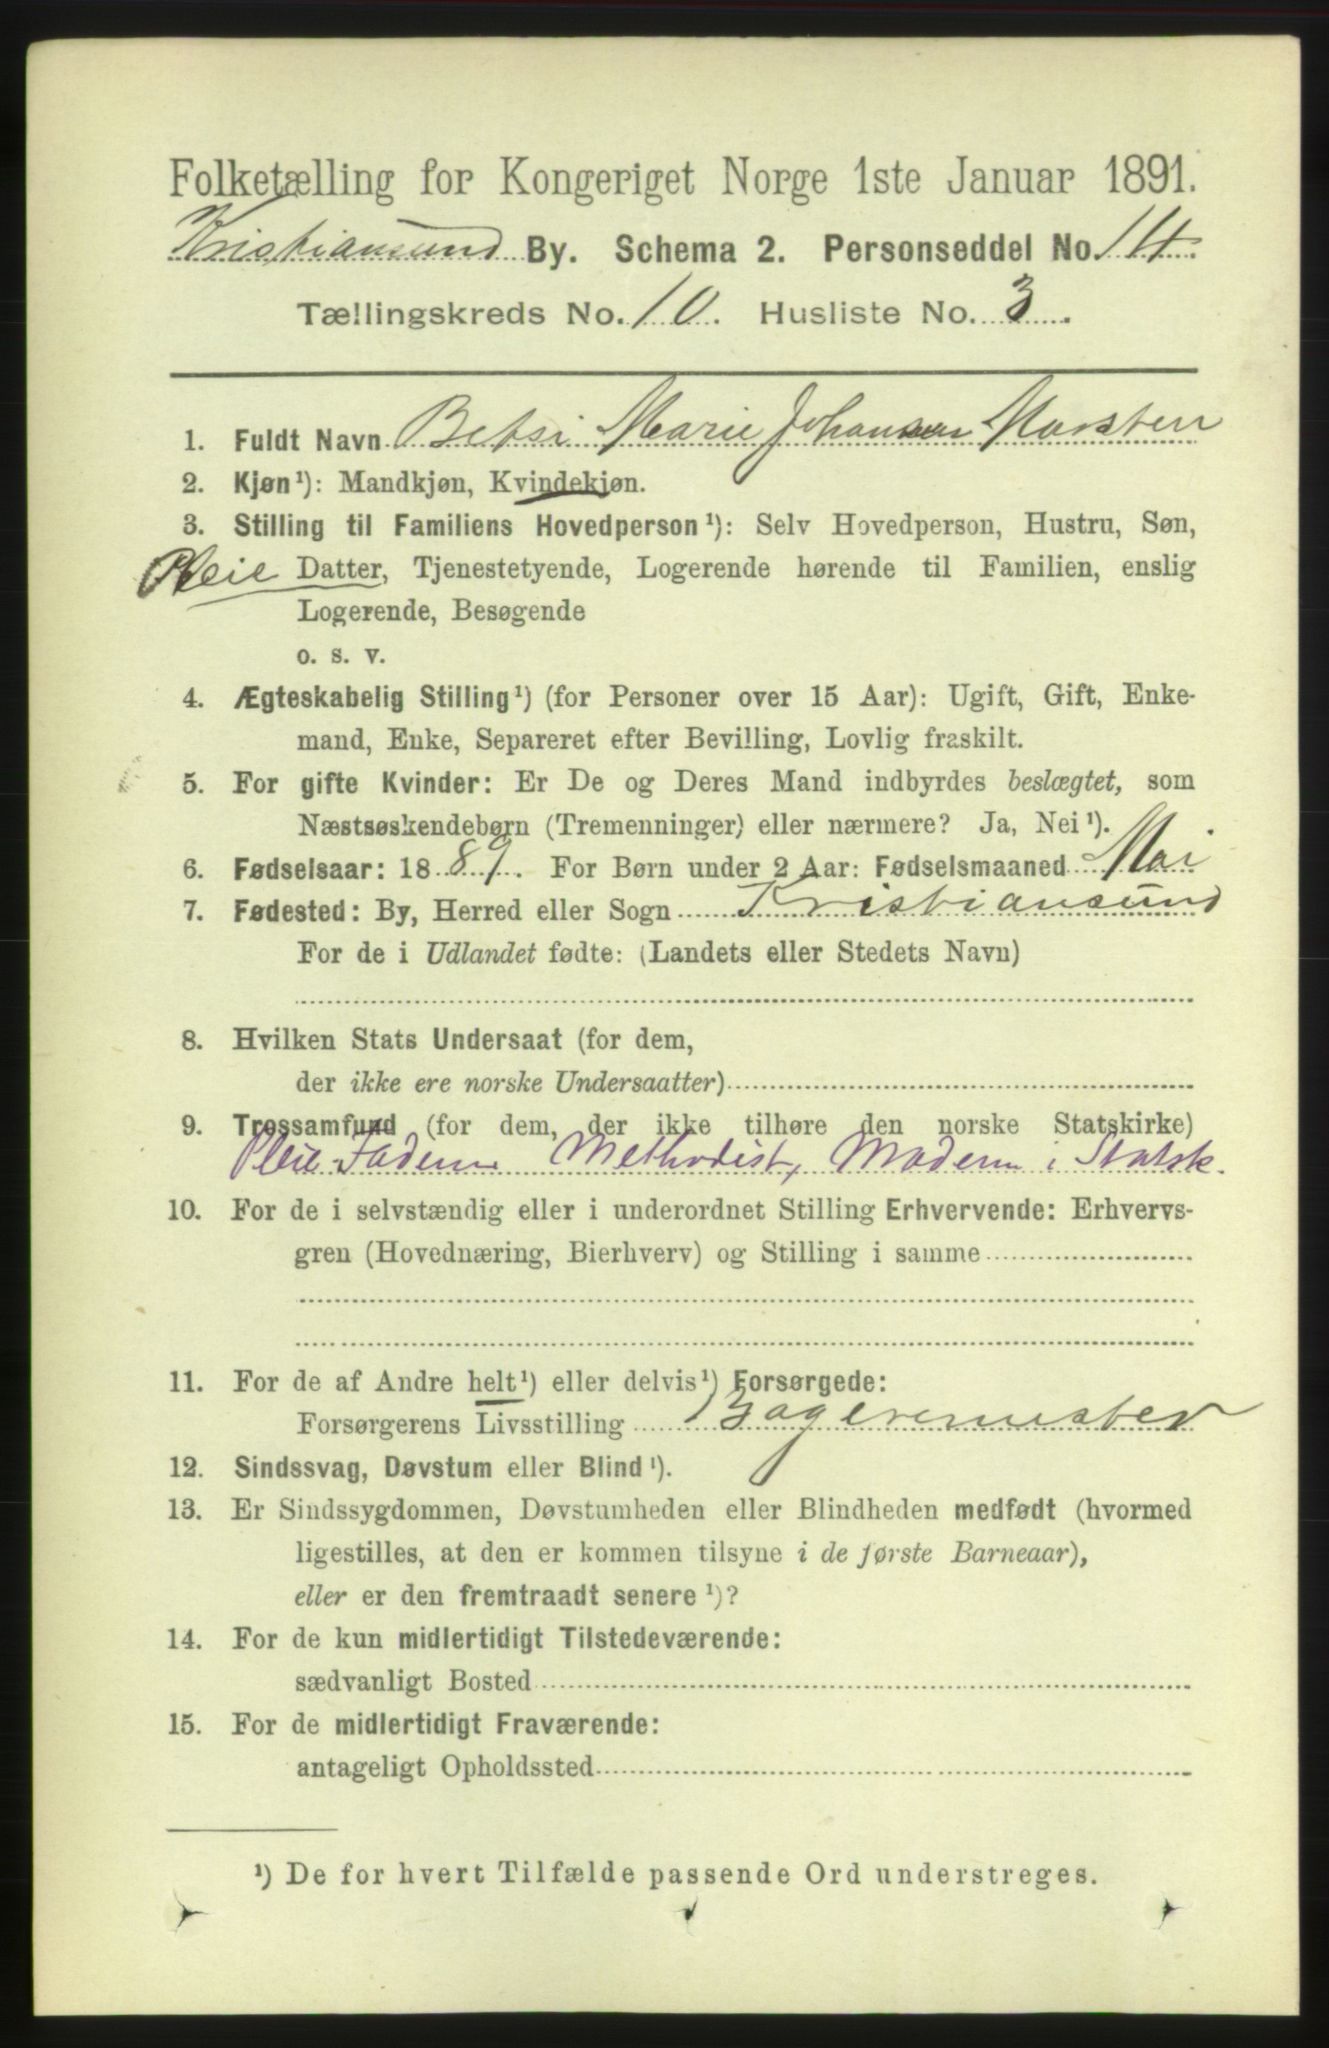 Folketælling for Kongeriget Norge 1ste Januar 1891.
Kristiansund By. Schema 2. Personseddel No. 14.
Tællingskreds No. 10. Husliste No. 3.
1. Fuldt Navn Betsi Marie Johansen Morsten
2. Kjøn¹): Mandkjøn, Kvindekjøn.
3. Stilling til Familiens Hovedperson¹): Selv Hovedperson, Hustru, Søn,
Pleie Datter, Tjenestetyende, Logerende hørende til Familien, enslig
Logerende, Besøgende
o. s. v.
4. Ægteskabelig Stilling¹) (for Personer over 15 Aar): Ugift, Gift, Enke-
mand, Enke, Separeret efter Bevilling, Lovlig fraskilt.
5. For gifte Kvinder: Er De og Deres Mand indbyrdes beslægtet, som
Næstsøskendebørn (Tremenninger) eller nærmere? Ja, Nei¹).
6. Fødselsaar: 1889. For Børn under 2 Aar: Fødselsmaaned Mai
7. Fødested: By, Herred eller Sogn Kristiansund
For de i Udlandet fødte: (Landets eller Stedets Navn)
8. Hvilken Stats Undersaat (for dem,
der ikke ere norske Undersaatter)
9. Trossamfund (for dem, der ikke tilhøre den norske Statskirke)
Pleie Faderen Methodist, Moderen i Statsk.
10. For de i selvstændig eller i underordnet Stilling Erhvervende: Erhvervs-
gren (Hovednæring, Bierhverv) og Stilling i samme
11. For de af Andre helt¹) eller delvis¹) Forsørgede:
Forsørgerens Livsstilling Bagermester
12. Sindssvag, Døvstum eller Blind¹).
13. Er Sindssygdommen, Døvstumheden eller Blindheden medfødt (hvormed
ligestilles, at den er kommen tilsyne i de første Barneaar),
eller er den fremtraadt senere¹)?
14. For de kun midlertidigt Tilstedeværende:
sædvanligt Bosted
15. For de midlertidigt Fraværende:
antageligt Opholdssted
¹) De for hvert Tilfælde passende Ord understreges.